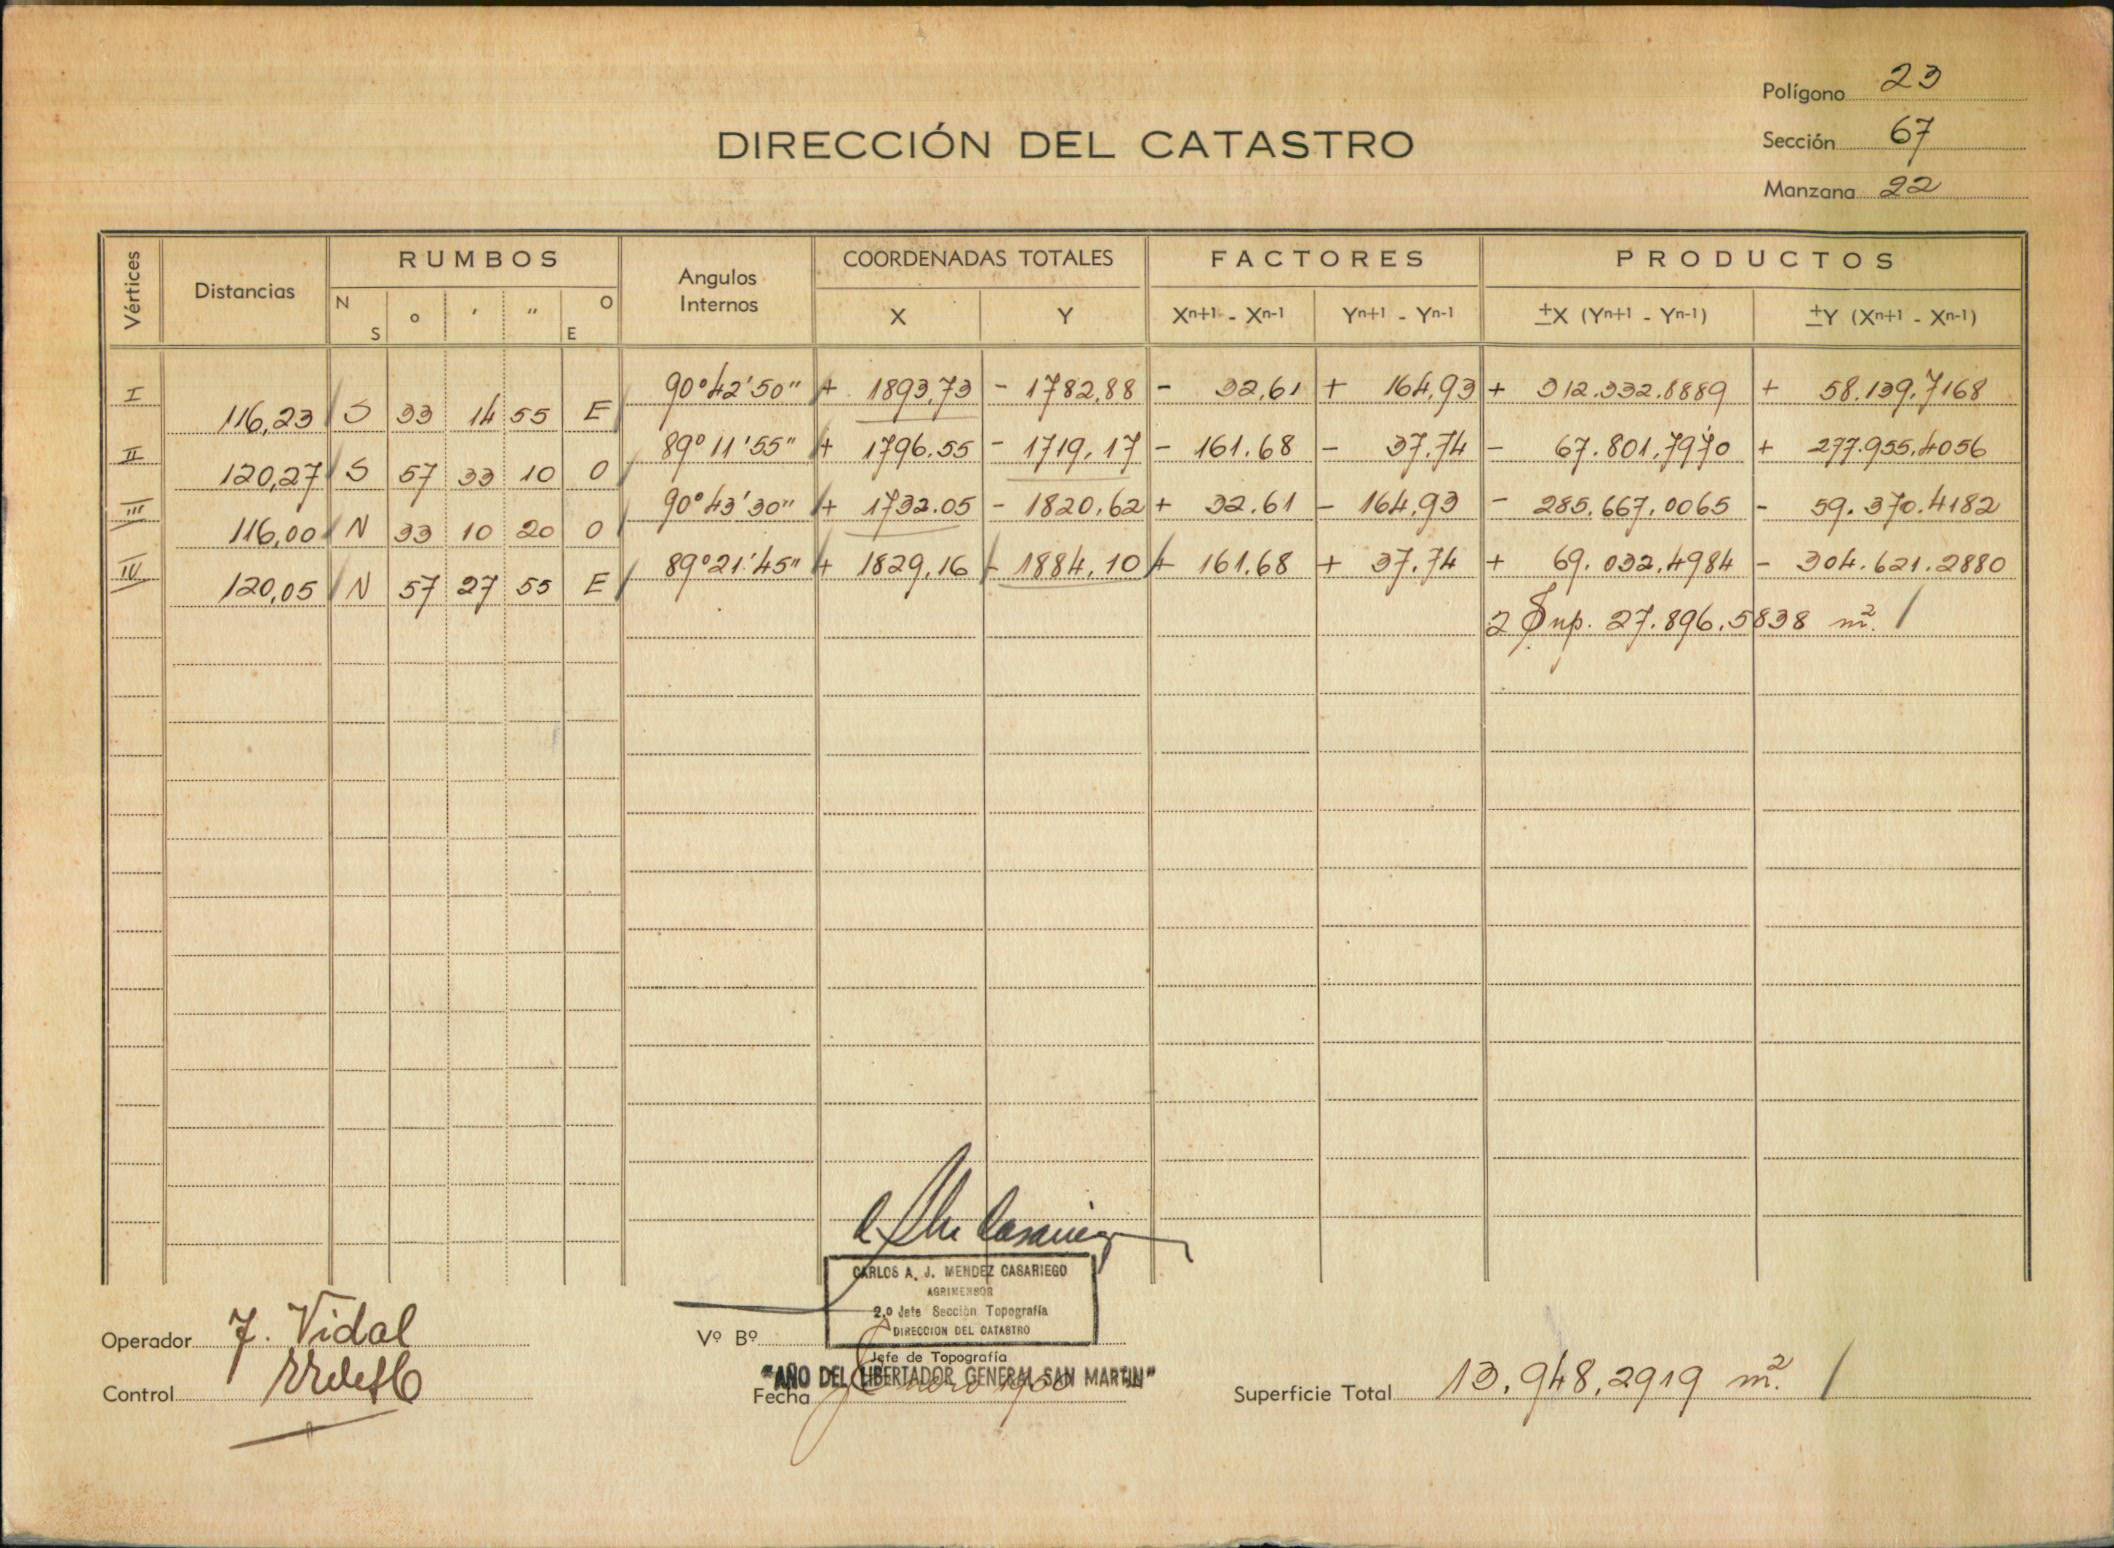 Polígono 23
DIRECCIÓN DEL CATASTRO
Sección 67
Manzana 22
Vértices Distancias RUMBOS Angulos Internos COORDENADAS TOTALES FACTORES PRODUCTOS
N S o ' " O E X Y Xn+1 - Xn-1 Yn+1 - Yn-1 ±X (Yn+1 - Yn-1) ±Y (Xn+1 - Xn-1)
I 90°42'50" + 1893,73 - 1782,88 - 32,61 + 164,93 + 312.332.8889 + 58.139,7168
116,23 S 33 14 55 E
II 89°11'55" + 1796.55 - 1719,17 - 161.68 - 37,74 - 67.801,7970 + 277.955,4056
120,27 S 57 33 10 O
III 90°43'30" + 1732.05 - 1820,62 + 32.61 - 164,93 - 285.667,0065 - 59.370.4182
116,00 N 33 10 20 O
IV 89°21'45" + 1829,16 - 1884,10 + 161.68 + 37,74 + 69.032,4984 - 304.621.2880
120,05 N 57 27 55 E
2 Sup. 27.896.5838 m²
CARLOS A. J. MENDEZ CASARIEGO
AGRIMENSOR
2.º Jefe Sección Topografía
DIRECCION DEL CATASTRO
Operador J. Vidal
Vº Bº
Jefe de Topografía
"AÑO DEL LIBERTADOR GENERAL SAN MARTIN"
Control
Fecha Enero 1950
Superficie Total 13.948,2919 m²